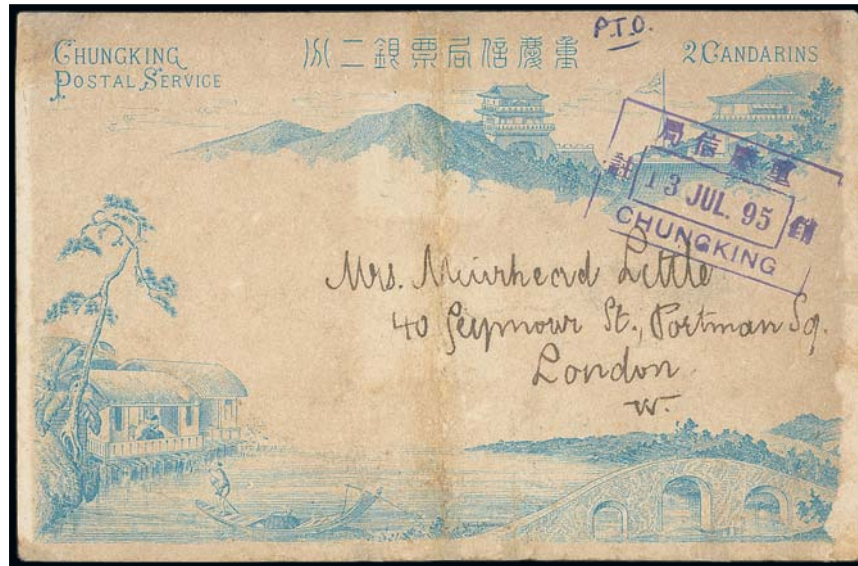 P.T.O.
CHUNGKING
POSTAL SERVICE
重慶信局票銀二分
2 CANDARINS
重慶信局
註 13 JUL. 95 銷
CHUNGKING
Mrs. Muirhead Little
40 Seymour St., Portman Sq.
London
W.